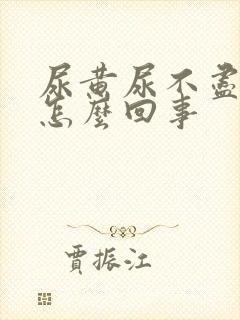 尿黄尿不盡
怎麼回事
賈振江